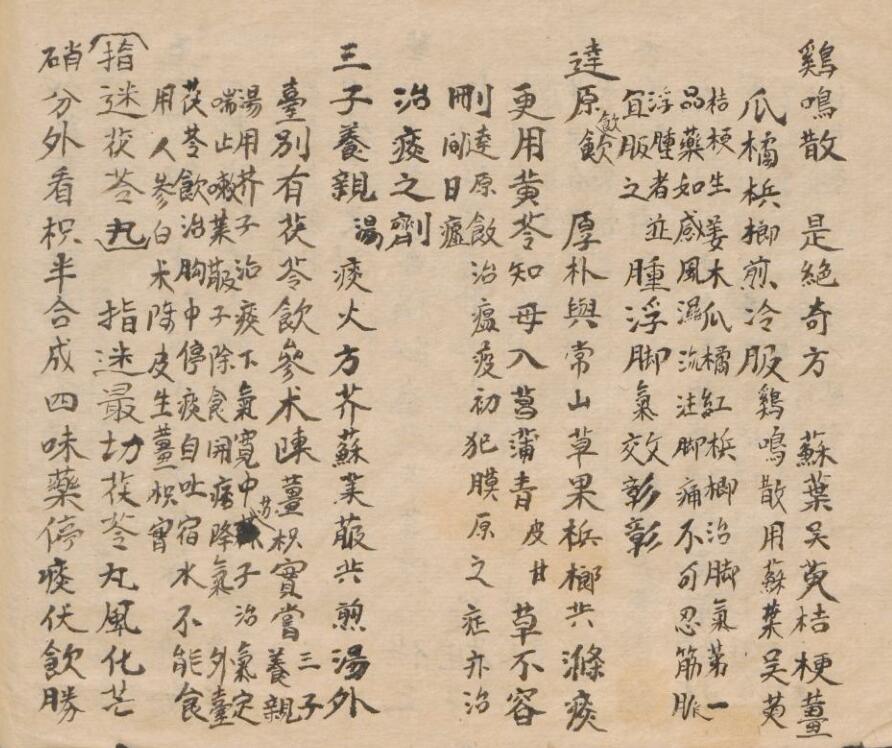 鷄鳴散　是絕奇方　蘇葉吳萸桔梗薑
瓜橘梹榔煎冷服　鷄鳴散用蘇葉吳萸
桔梗生姜木瓜橘紅梹榔治脚氣第一
品藥如感風濕流注脚痛不可忍筋脈
浮腫者並
宜服之　腫浮脚氣效彰彰
達原飲　厚朴與常山草果梹榔共滌痰
更用黄芩知母入菖蒲青皮甘草不容
刪　達原飲治瘟疫初犯膜原之症亦治
間日瘧
治痰之劑
三子養親湯　痰火方芥蘇萊菔共煎湯外
臺別有茯苓飲參术陳薑枳實嘗　三子養親
湯用芥子治痰下氣寬中蘇子治氣定
喘止嗽萊菔子除食開痞降氣　外臺
茯苓飲治胸中停痰自吐宿水不能食
用人參白术陳皮生薑枳實
指迷茯苓丸　指迷最切茯苓丸風化芒
硝分外看枳半合成四味藥停痰伏飲勝